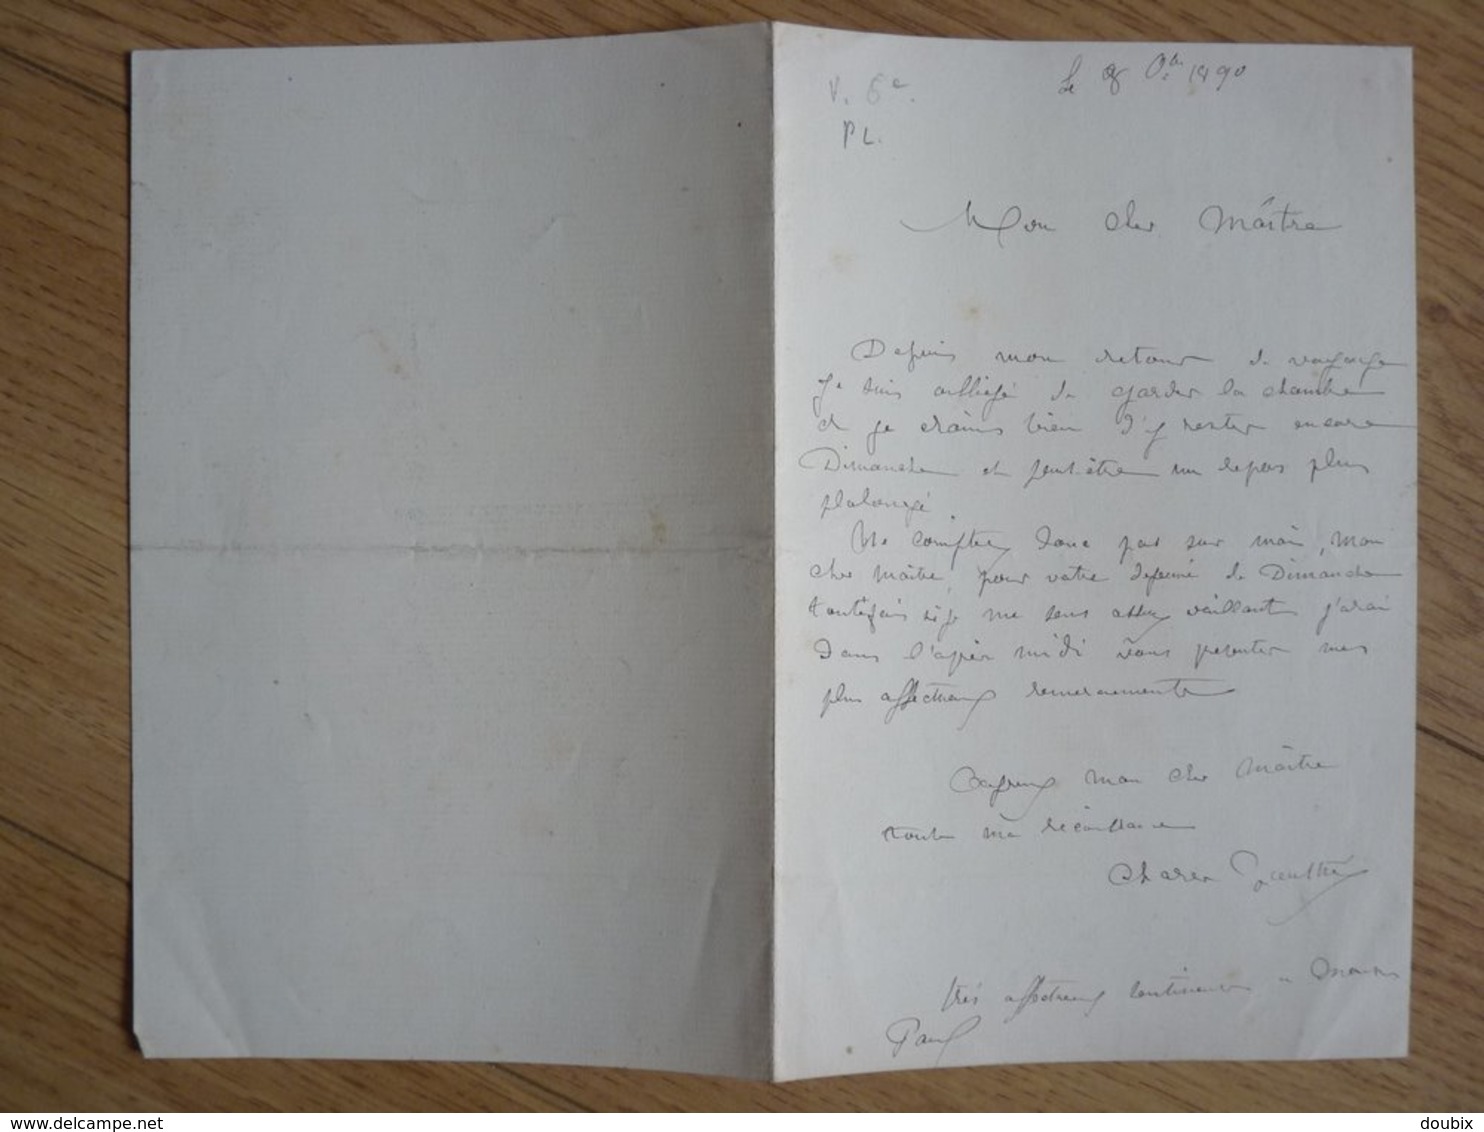 Le 8 Obre 1890
V. 6e.
PL.
Mon cher Maître
Depuis mon retour de voyage
je suis obligé de garder la chambre
et je crains bien d'y rester encore
Dimanche et peut être un repos plus
prolongé
Ne comptez donc pas sur moi, mon
cher Maître, pour votre dejeuné de Dimanche
toutefois si je me sens assez vaillant j'irai
dans l'après midi vous presenter mes
plus affectueux remerciements
Agréez mon cher Maître
toute ma
Charles Gauthier
très affectueux
Paul
delcampe.net
doubix